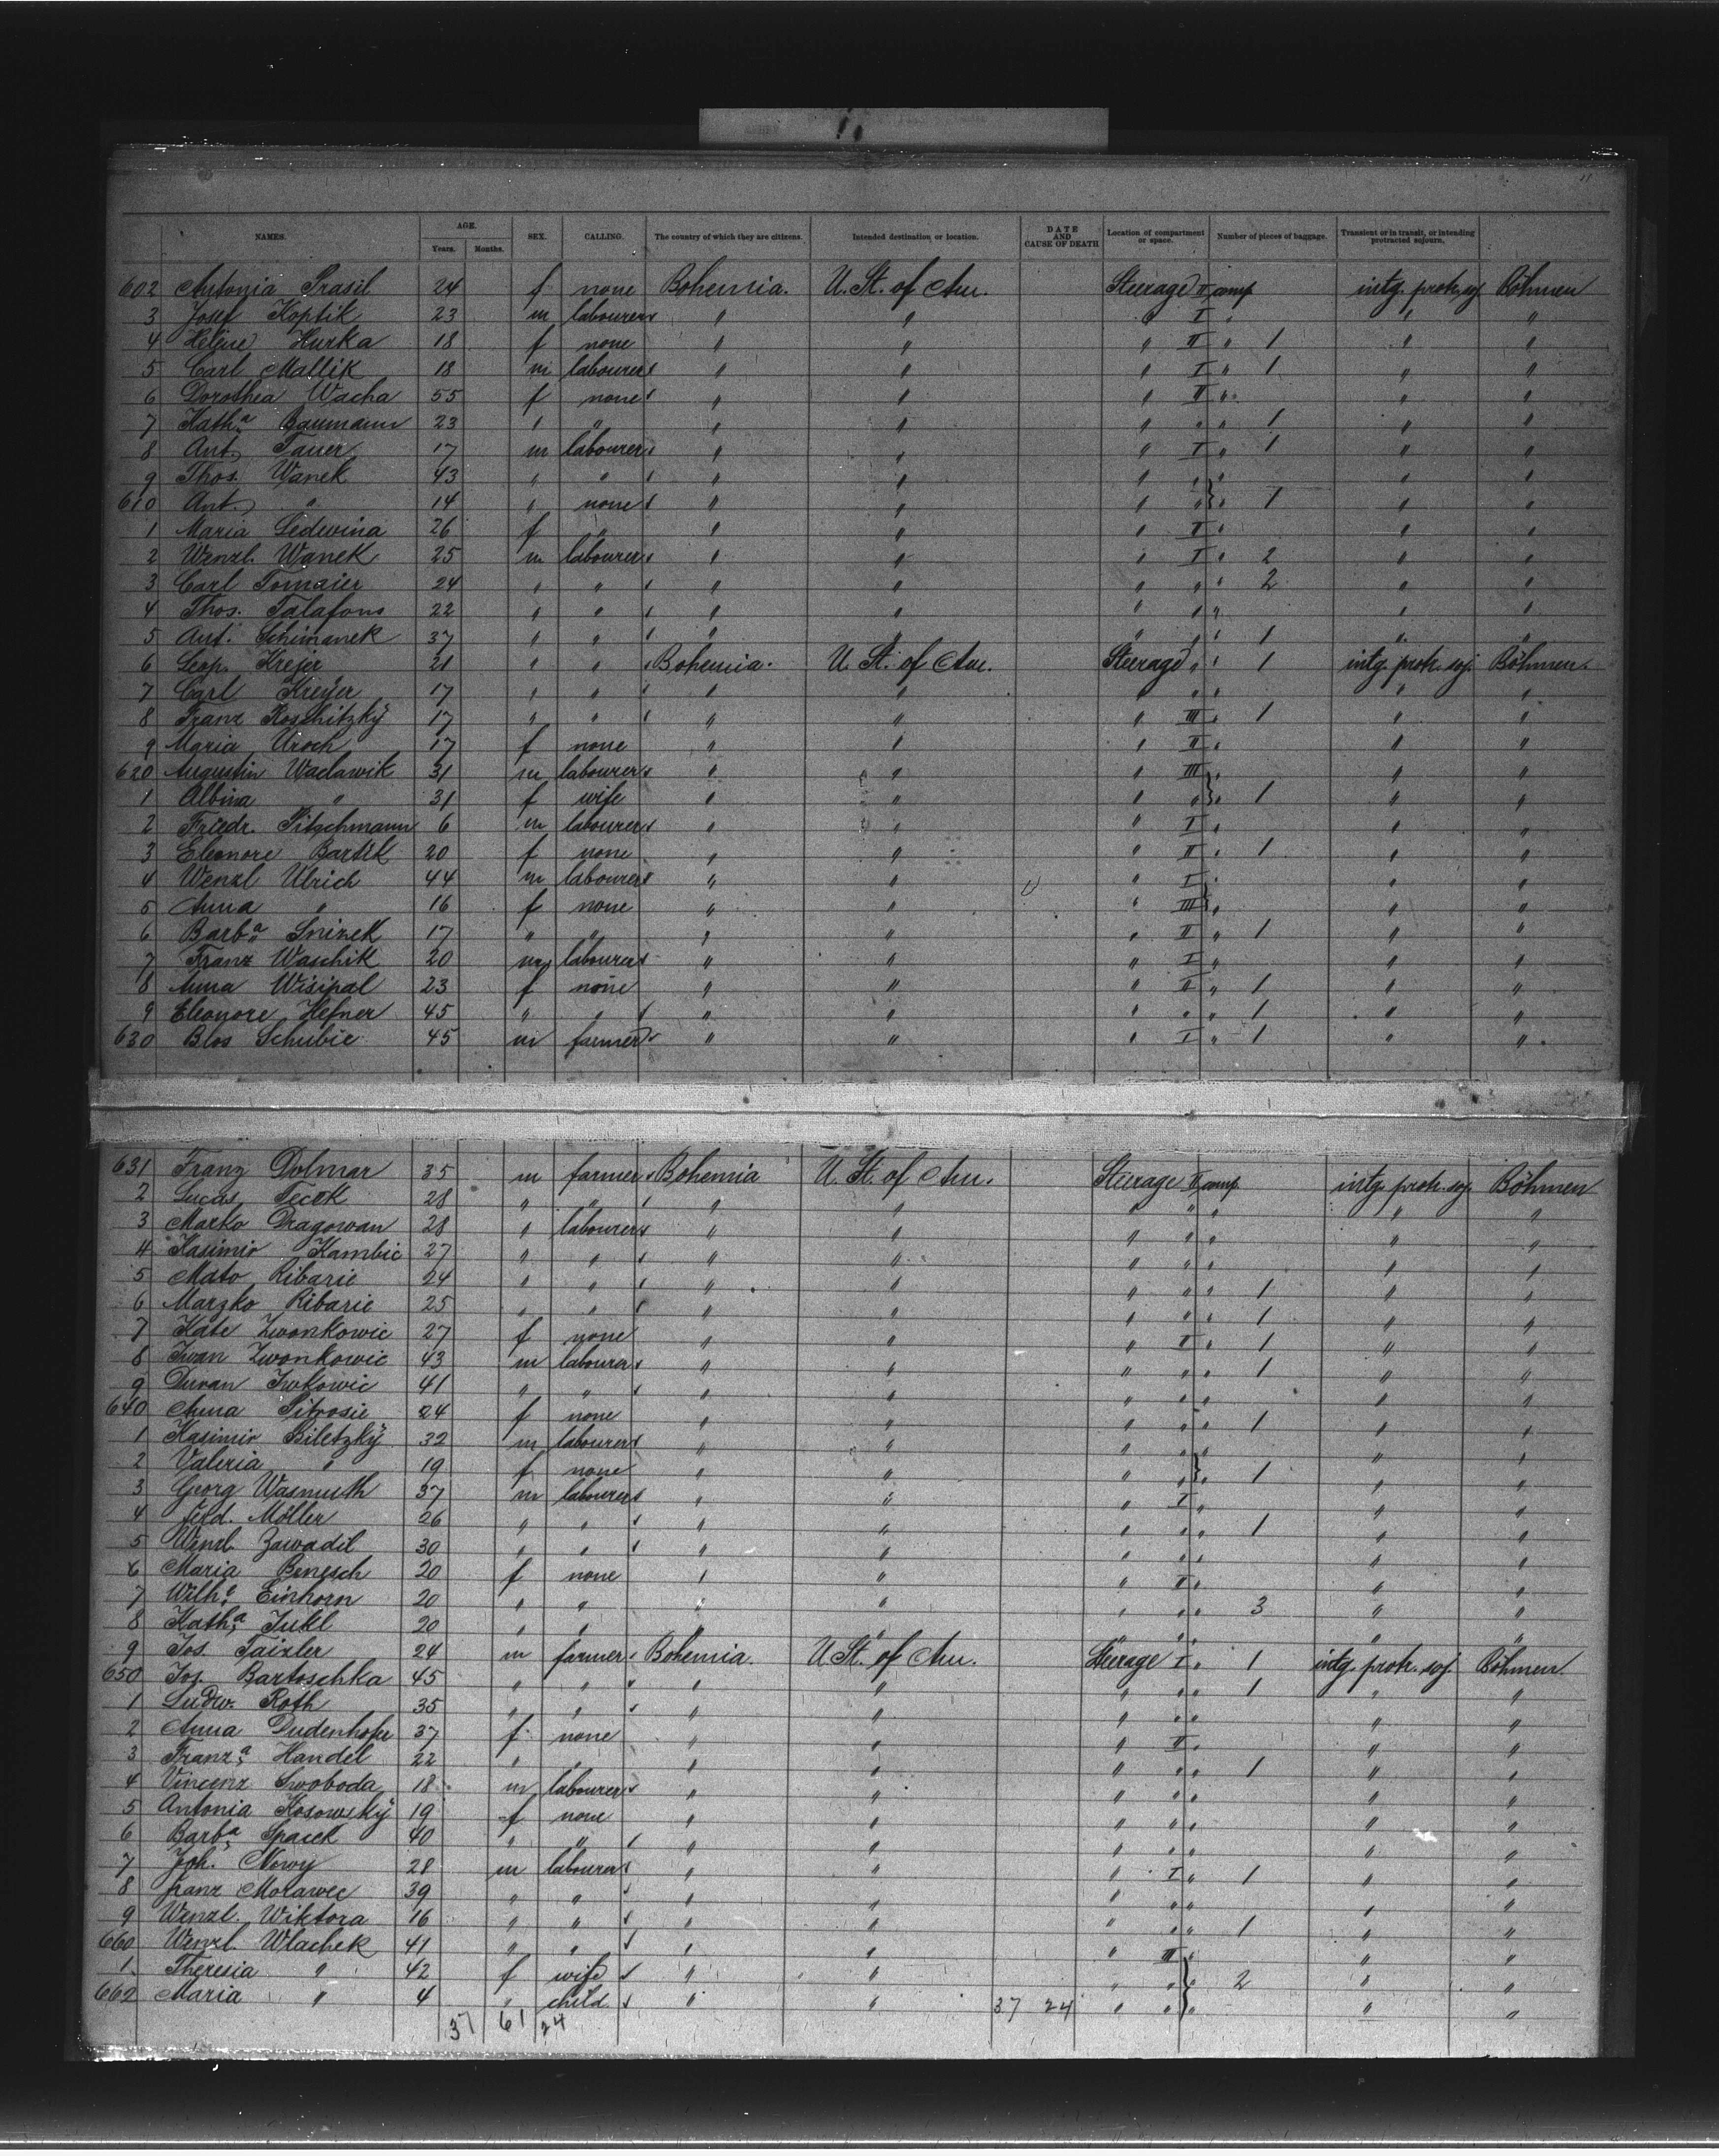 NAMES. AGE. Years. Months. SEX. CALLING. The country of which they are citizens. Intended destination or location. DATE AND CAUSE OF DEATH Location of compartment or space. Number of pieces of baggage. Transient or in transit, or intending protracted sojourn.
602 Antonia Prasil 24 f none Bohemia. U. St. of Am. Steerage II comp intg. protr. soj. Böhmen
3 Josef Koptik 23 m labourer " " " I " " "
4 Helene Hurka 18 f none " " " II " 1 " "
5 Carl Mallik 18 m labourer " " " I " 1 " "
6 Dorothea Wacha 55 f none " " " II " " "
7 Kath.a Baumann 23 " " " " " " " 1 " "
8 Ant. Tauer 17 m labourer " " " I " 1 " "
9 Thos. Wanek 43 " " " " " " " " "
610 Ant. " 14 " none " " " " " 1 " "
1 Maria Ledevina 26 f " " " " II " " "
2 Wenzl. Wanek 25 m labourer " " " I " 2 " "
3 Carl Tomaier 24 " " " " " " " 2 " "
4 Thos. Talafous 22 " " " " " " " " "
5 Ant. Schimanek 37 " " " " " " " 1 " "
6 Leop. Krejer 21 " " Bohemia. U. St. of Am. Steerage " " 1 intg. protr. soj. Böhmen.
7 Carl Kreyer 17 " " " " " " " " "
8 Franz Roschitzky 17 " " " " " III " 1 " "
9 Maria Uroch 17 f none " " " II " " "
620 Augustin Waclawik 31 m labourer " " " III " " "
1 Albina " 31 f wife " " " " " 1 " "
2 Friedr. Pitschmann 6 m labourer " " " I " " "
3 Eleonore Bartik 20 f none " " " II " 1 " "
4 Wenzl Ulrich 44 m labourer " " " I " " "
5 Anna " 16 f none " " " III " " "
6 Barb.a Snizek 17 " " " " " II " 1 " "
7 Franz Waschik 20 m labourer " " " I " " "
8 Anna Wisipal 23 f none " " " II " 1 " "
9 Eleonore Hefner 45 " " " " " " " 1 " "
630 Blas Schubic 45 m farmer " " " I " 1 " "
631 Franz Dolmar 35 m farmer Bohemia U. St. of Am. Steerage II comp. intg. protr. soj. Böhmen
2 Lucas 28 " " " " " " " " "
3 Marko Dragowan 28 " labourer " " " " " " "
4 Kasimir Kambic 27 " " " " " " " " "
5 Mato Ribaric 24 " " " " " " " 1 " "
6 Marzko Ribaric 25 " " " " " " " 1 " "
7 Kate Zwonkowic 27 f none " " " II " 1 " "
8 Iwan Zwonkowic 43 m labourer " " " " " 1 " "
9 Duran Iwkowic 41 " " " " " " " " "
640 Anna Pitrosic 24 f none " " " " " 1 " "
1 Kasimir Biletzky 32 m labourer " " " " " " "
2 Valeria " 19 f none " " " " " 1 " "
3 Georg Wasmuth 37 m labourer " " " I " " "
4 Ferd. Möller 26 " " " " " " " 1 " "
5 Wenzl. Zawadil 30 " " " " " " " " "
6 Maria Benesch 20 f none " " " II " " "
7 Wilh.e Einhorn 20 " " " " " " " 3 " "
8 Kath.a Jukl 20 " " " " " " " " "
9 Jos. Taixler 24 m farmer Bohemia. U. St. of Am. Steerage I " 1 intg. protr. soj. Böhmen.
650 Jos. Bartoschka 45 " " " " " " " 1 " "
1 Ludw. Roth 35 " " " " " " " " "
2 Anna Dudenhofer 37 f none " " " II " " "
3 Franz.a Handel 22 " " " " " " " 1 " "
4 Vincenz Swoboda 18 m labourer " " " " " " "
5 Antonia Kosowsky 19 f none " " " " " " "
6 Barb.a Spacek 40 " " " " " " " " "
7 Joh. Nowy 28 m labourer " " " I " 1 " "
8 Franz Morawec 39 " " " " " " " " "
9 Wenzl. Wiktora 16 " " " " " " " 1 " "
660 Wenzl. Wlachek 41 " " " " " III " " "
1 Theresia " 42 f wife " " " " " 2 " "
662 Maria " 4 " child " " 37 24 " " " " "
37 61 24